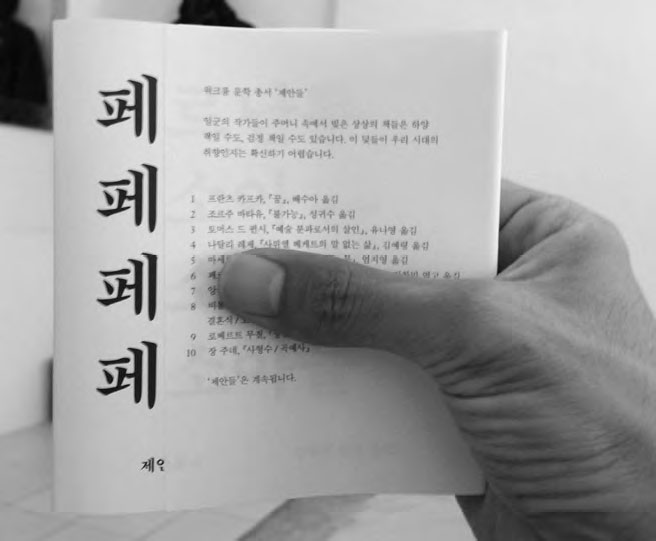 페
페
페
페
제안
워크룸 문학 총서 '제안들'
일군의 작가들이 주머니 속에서 빚은 상상의 책들은 하양
책일 수도, 검정 책일 수도 있습니다. 이 덫들이 우리 시대의
취향인지는 확신하기 어렵습니다.
1 프란츠 카프카, 『꿈』, 배수아 옮김
2 조르주 바타유, 『불가능』, 성귀수 옮김
3 토머스 드 퀸시, 『예술 분과로서의 살인』, 유나영 옮김
4 나탈리 레제, 『사뮈엘 베케트의 말 없는 삶』, 김예령 옮김
5 마세 엄지영 옮김
6 페 엮고 옮김
7 앙
8
결혼식 /
9 로베르트 무질,
10 장 주네, 『사형수 / 곡예사』
'제안들'은 계속됩니다.